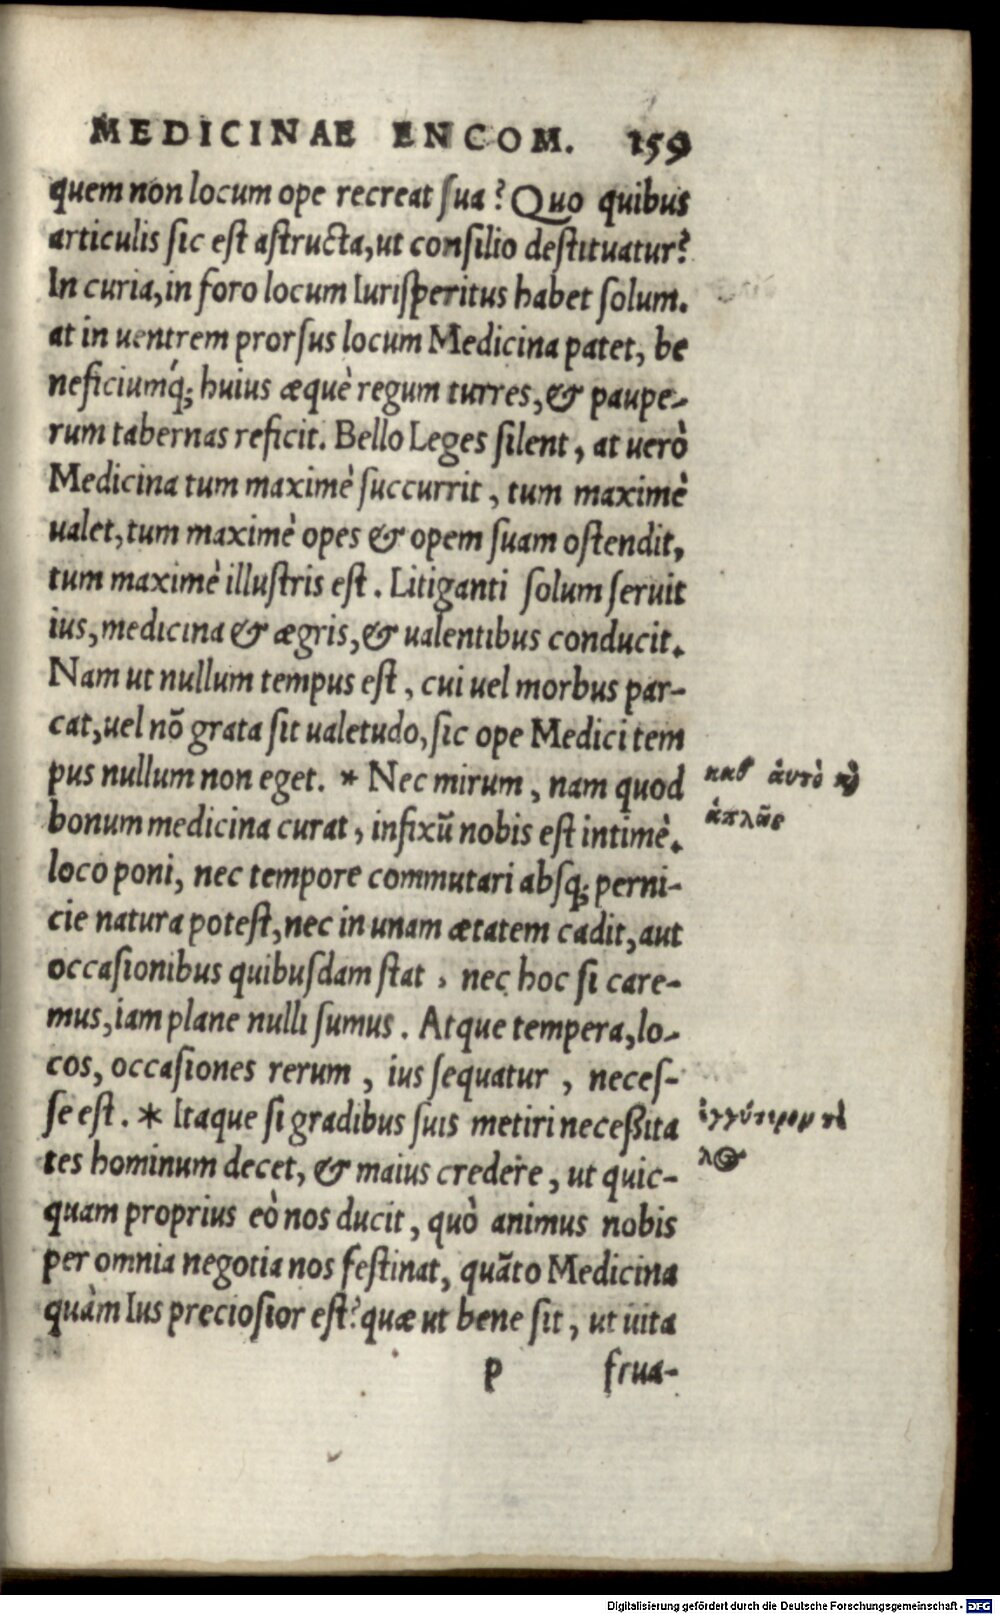 MEDICINAE ENCOM. 159
quem non locum ope recreat ſua? Quo quibus
articulis ſic eſt aſtructa, ut conſilio deſtituatur?
In curia, in foro locum Iuriſperitus habet ſolum.
at in uentrem prorſus locum Medicina patet, be
neficiumq́; huius æquè regum turres, & paupe-
rum tabernas reficit. Bello Leges ſilent, at uerò
Medicina tum maximè ſuccurrit, tum maximè
ualet, tum maximè opes & opem ſuam oſtendit,
tum maximè illuſtris eſt. Litiganti ſolum ſeruit
ius, medicina & ægris, & ualentibus conducit.
Nam ut nullum tempus eſt, cui uel morbus par-
cat, uel nō grata ſit ualetudo, ſic ope Medici tem
pus nullum non eget. * Nec mirum, nam quod
καθ ἁυτὸ κỳ
bonum medicina curat, infixū nobis eſt intimè.
ἁπλῶς
loco poni, nec tempore commutari abſq; perni-
cie natura poteſt, nec in unam ætatem cadit, aut
occaſionibus quibuſdam ſtat, nec hoc ſi care-
mus, iam plane nulli ſumus. Atque tempera, lo-
cos, occaſiones rerum, ius ſequatur, neceſ-
ſe eſt. * Itaque ſi gradibus ſuis metiri neceßita
ἐγγύτερον τέ
tes hominum decet, & maius credere, ut quic-
λος
quam proprius eò nos ducit, quò animus nobis
per omnia negotia nos feſtinat, quāto Medicina
quàm Ius precioſior eſt? quæ ut bene ſit, ut uita
p frua-
Digitalisierung gefördert durch die Deutsche Forschungsgemeinschaft - DFG